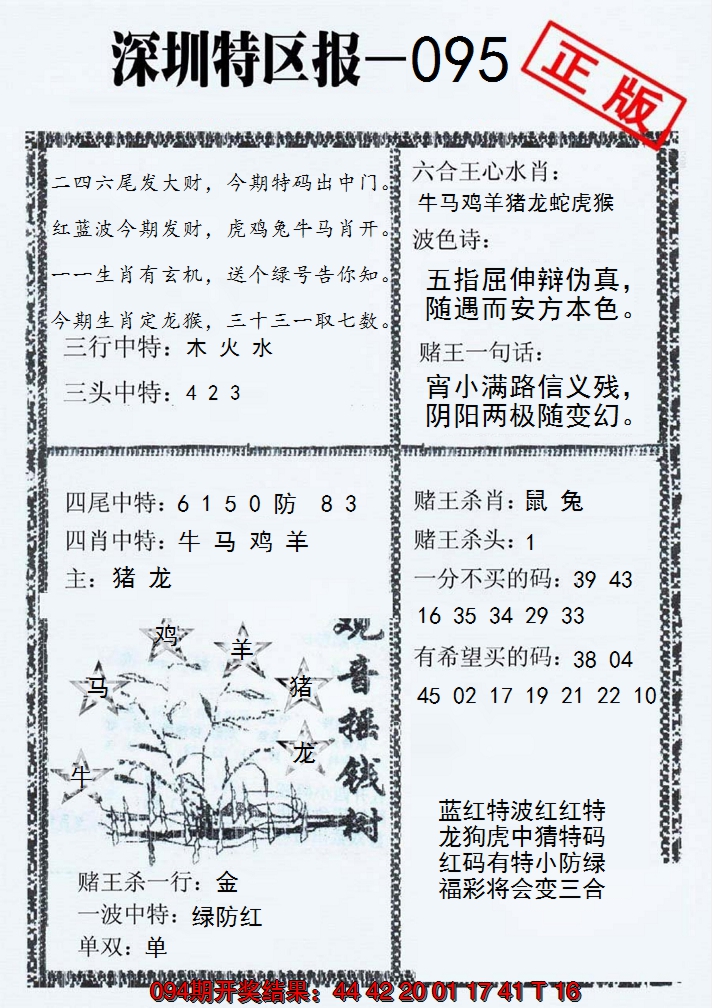 深圳特区报—095
正版
二四六尾发大财，今期特码出中门。
红蓝波今期发财，虎鸡兔牛马肖开。
一一生肖有玄机，送个绿号告你知。
今期生肖定龙猴，三十三一取七数。
三行中特：木 火 水
三头中特：4 2 3
六合王心水肖：
牛马鸡羊猪龙蛇虎猴
波色诗：
五指屈伸辩伪真，
随遇而安方本色。
赌王一句话：
宵小满路信义残，
阴阳两极随变幻。
四尾中特：6 1 5 0 防 8 3
四肖中特：牛 马 鸡 羊
主：猪 龙
鸡
羊
马
猪
龙
牛
观音摇钱树
赌王杀一行：金
一波中特：绿防红
单双：单
赌王杀肖：鼠 兔
赌王杀头：1
一分不买的码：39 43
16 35 34 29 33
有希望买的码：38 04
45 02 17 19 21 22 10
蓝红特波红红特
龙狗虎中猜特码
红码有特小防绿
福彩将会变三合
094期开奖结果：44 42 20 01 17 41 T 16